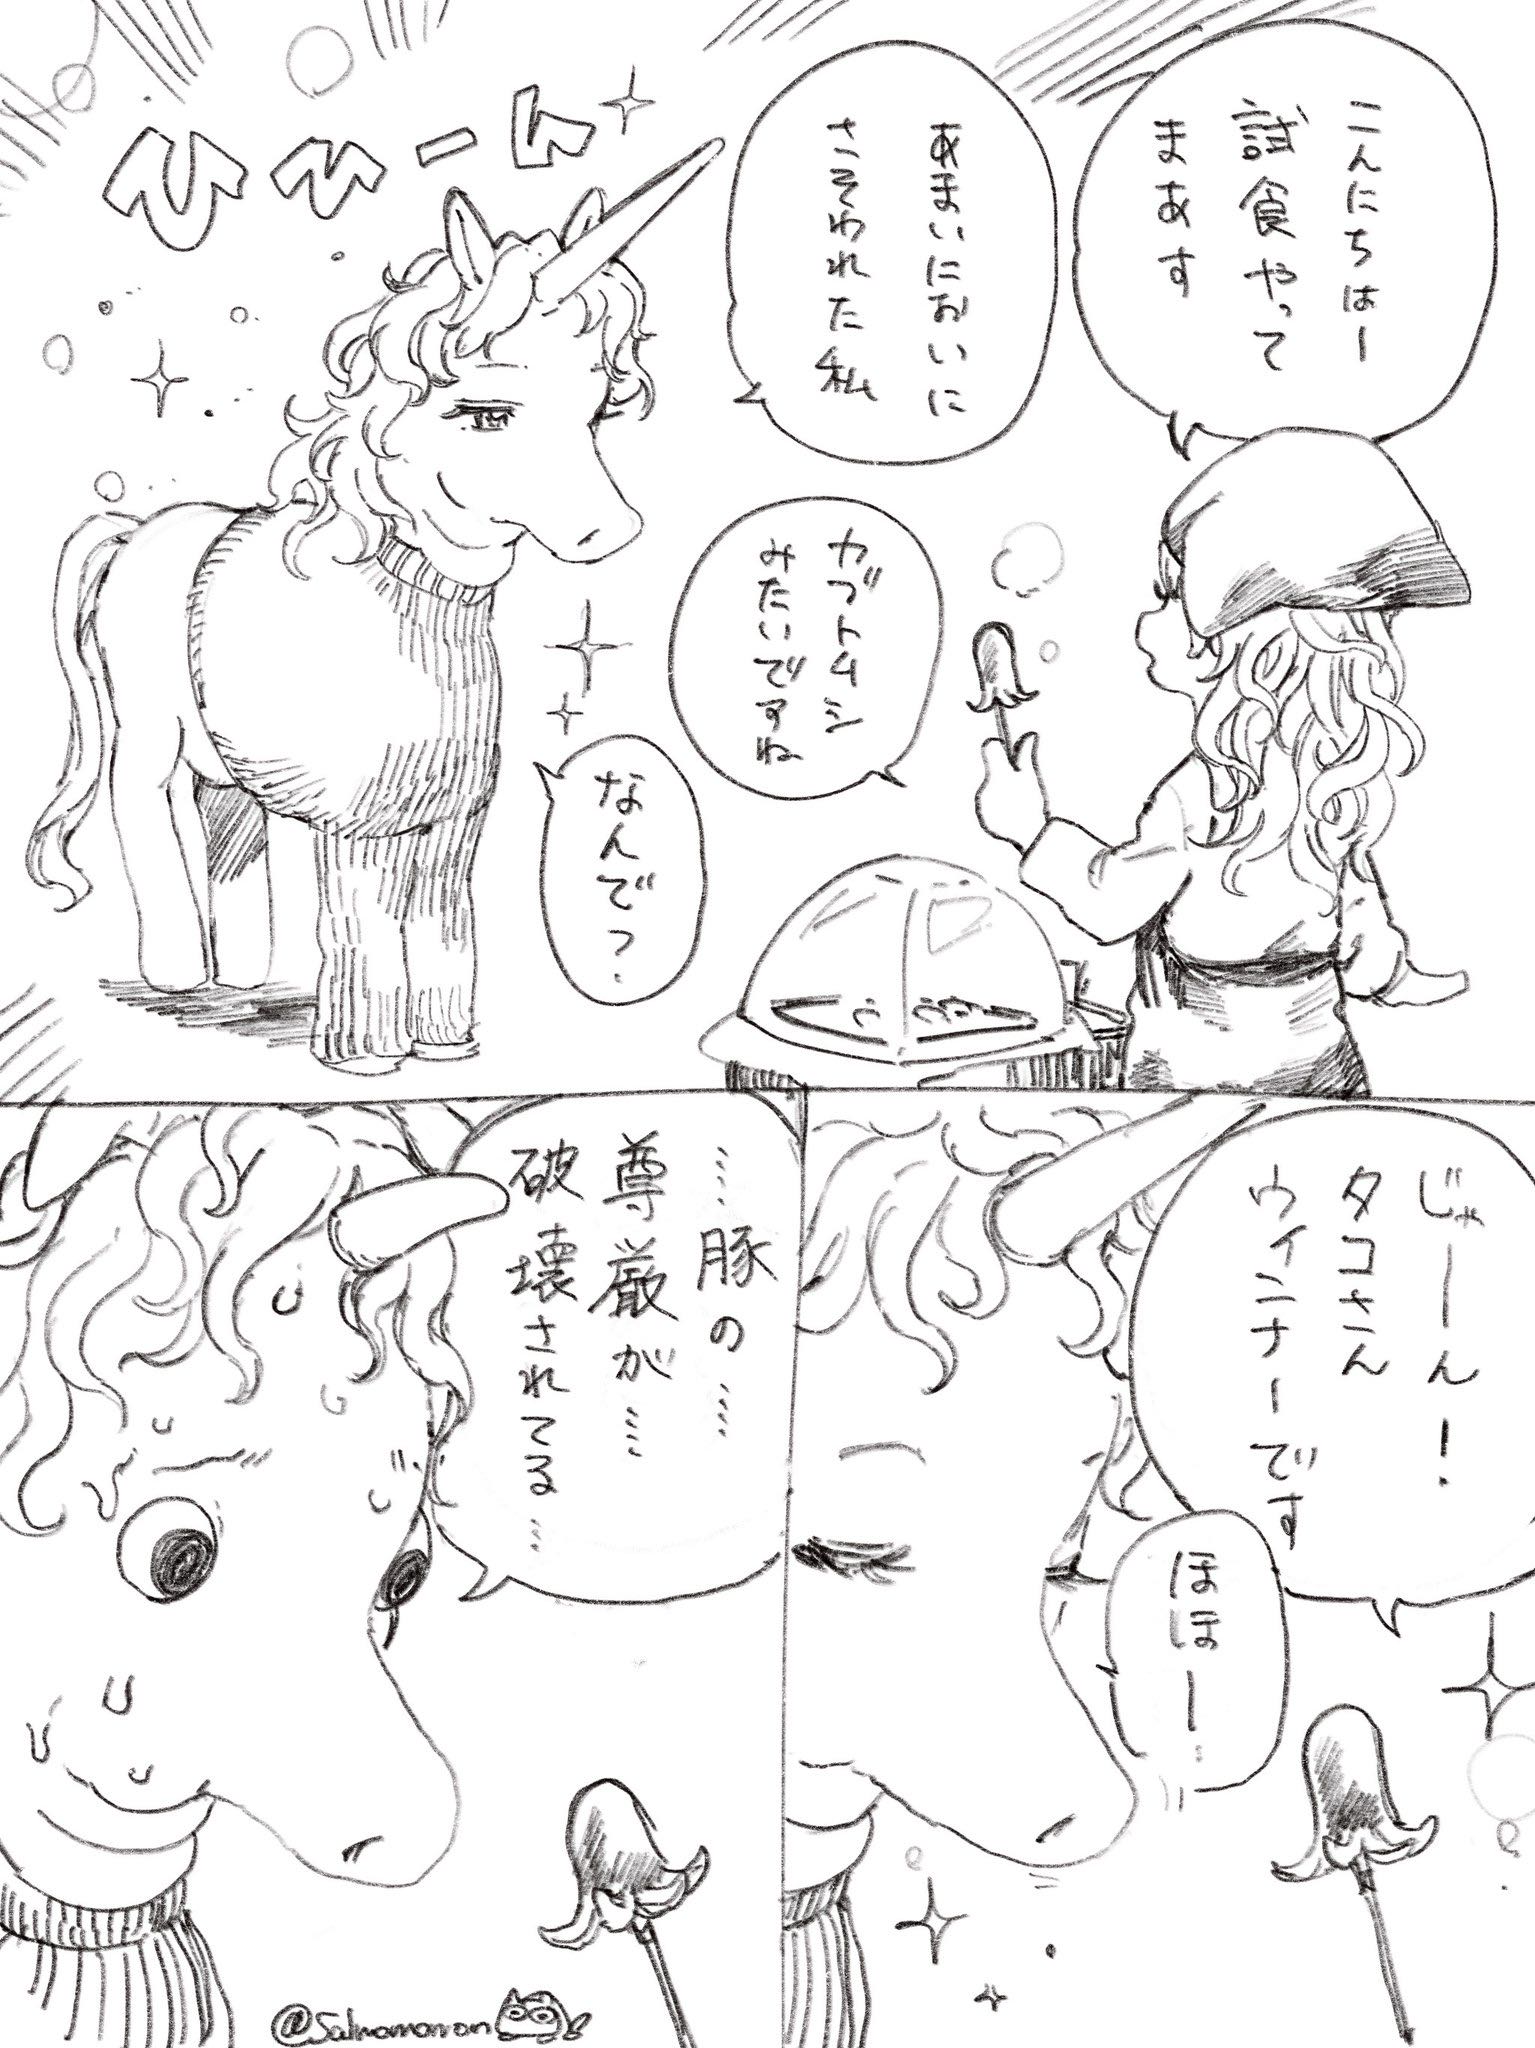 こんにちはー
試食やって
まあす
あまいにおいに
さそわれた私
ひひーん
カブトムシ
みたいですね
なんでっ
じゃーん！
タコさん
ウインナーです
ほほー
……豚の……
尊厳が……
破壊されてる……
@Salmomomon